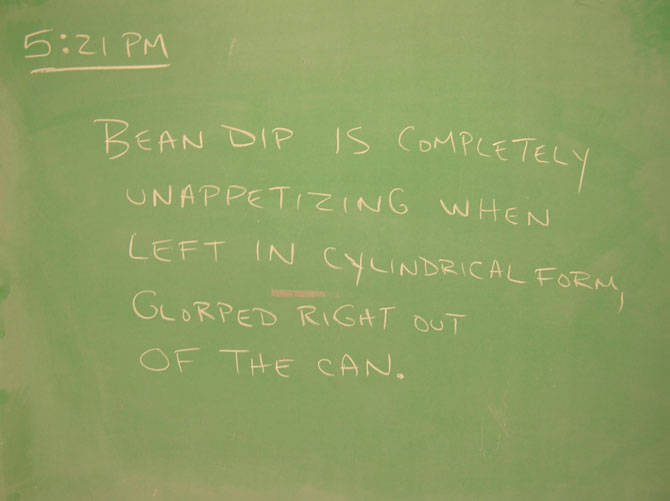 5:21 PM
BEAN DIP IS COMPLETELY
UNAPPETIZING WHEN
LEFT IN CYLINDRICAL FORM,
GLORPED RIGHT OUT
OF THE CAN.